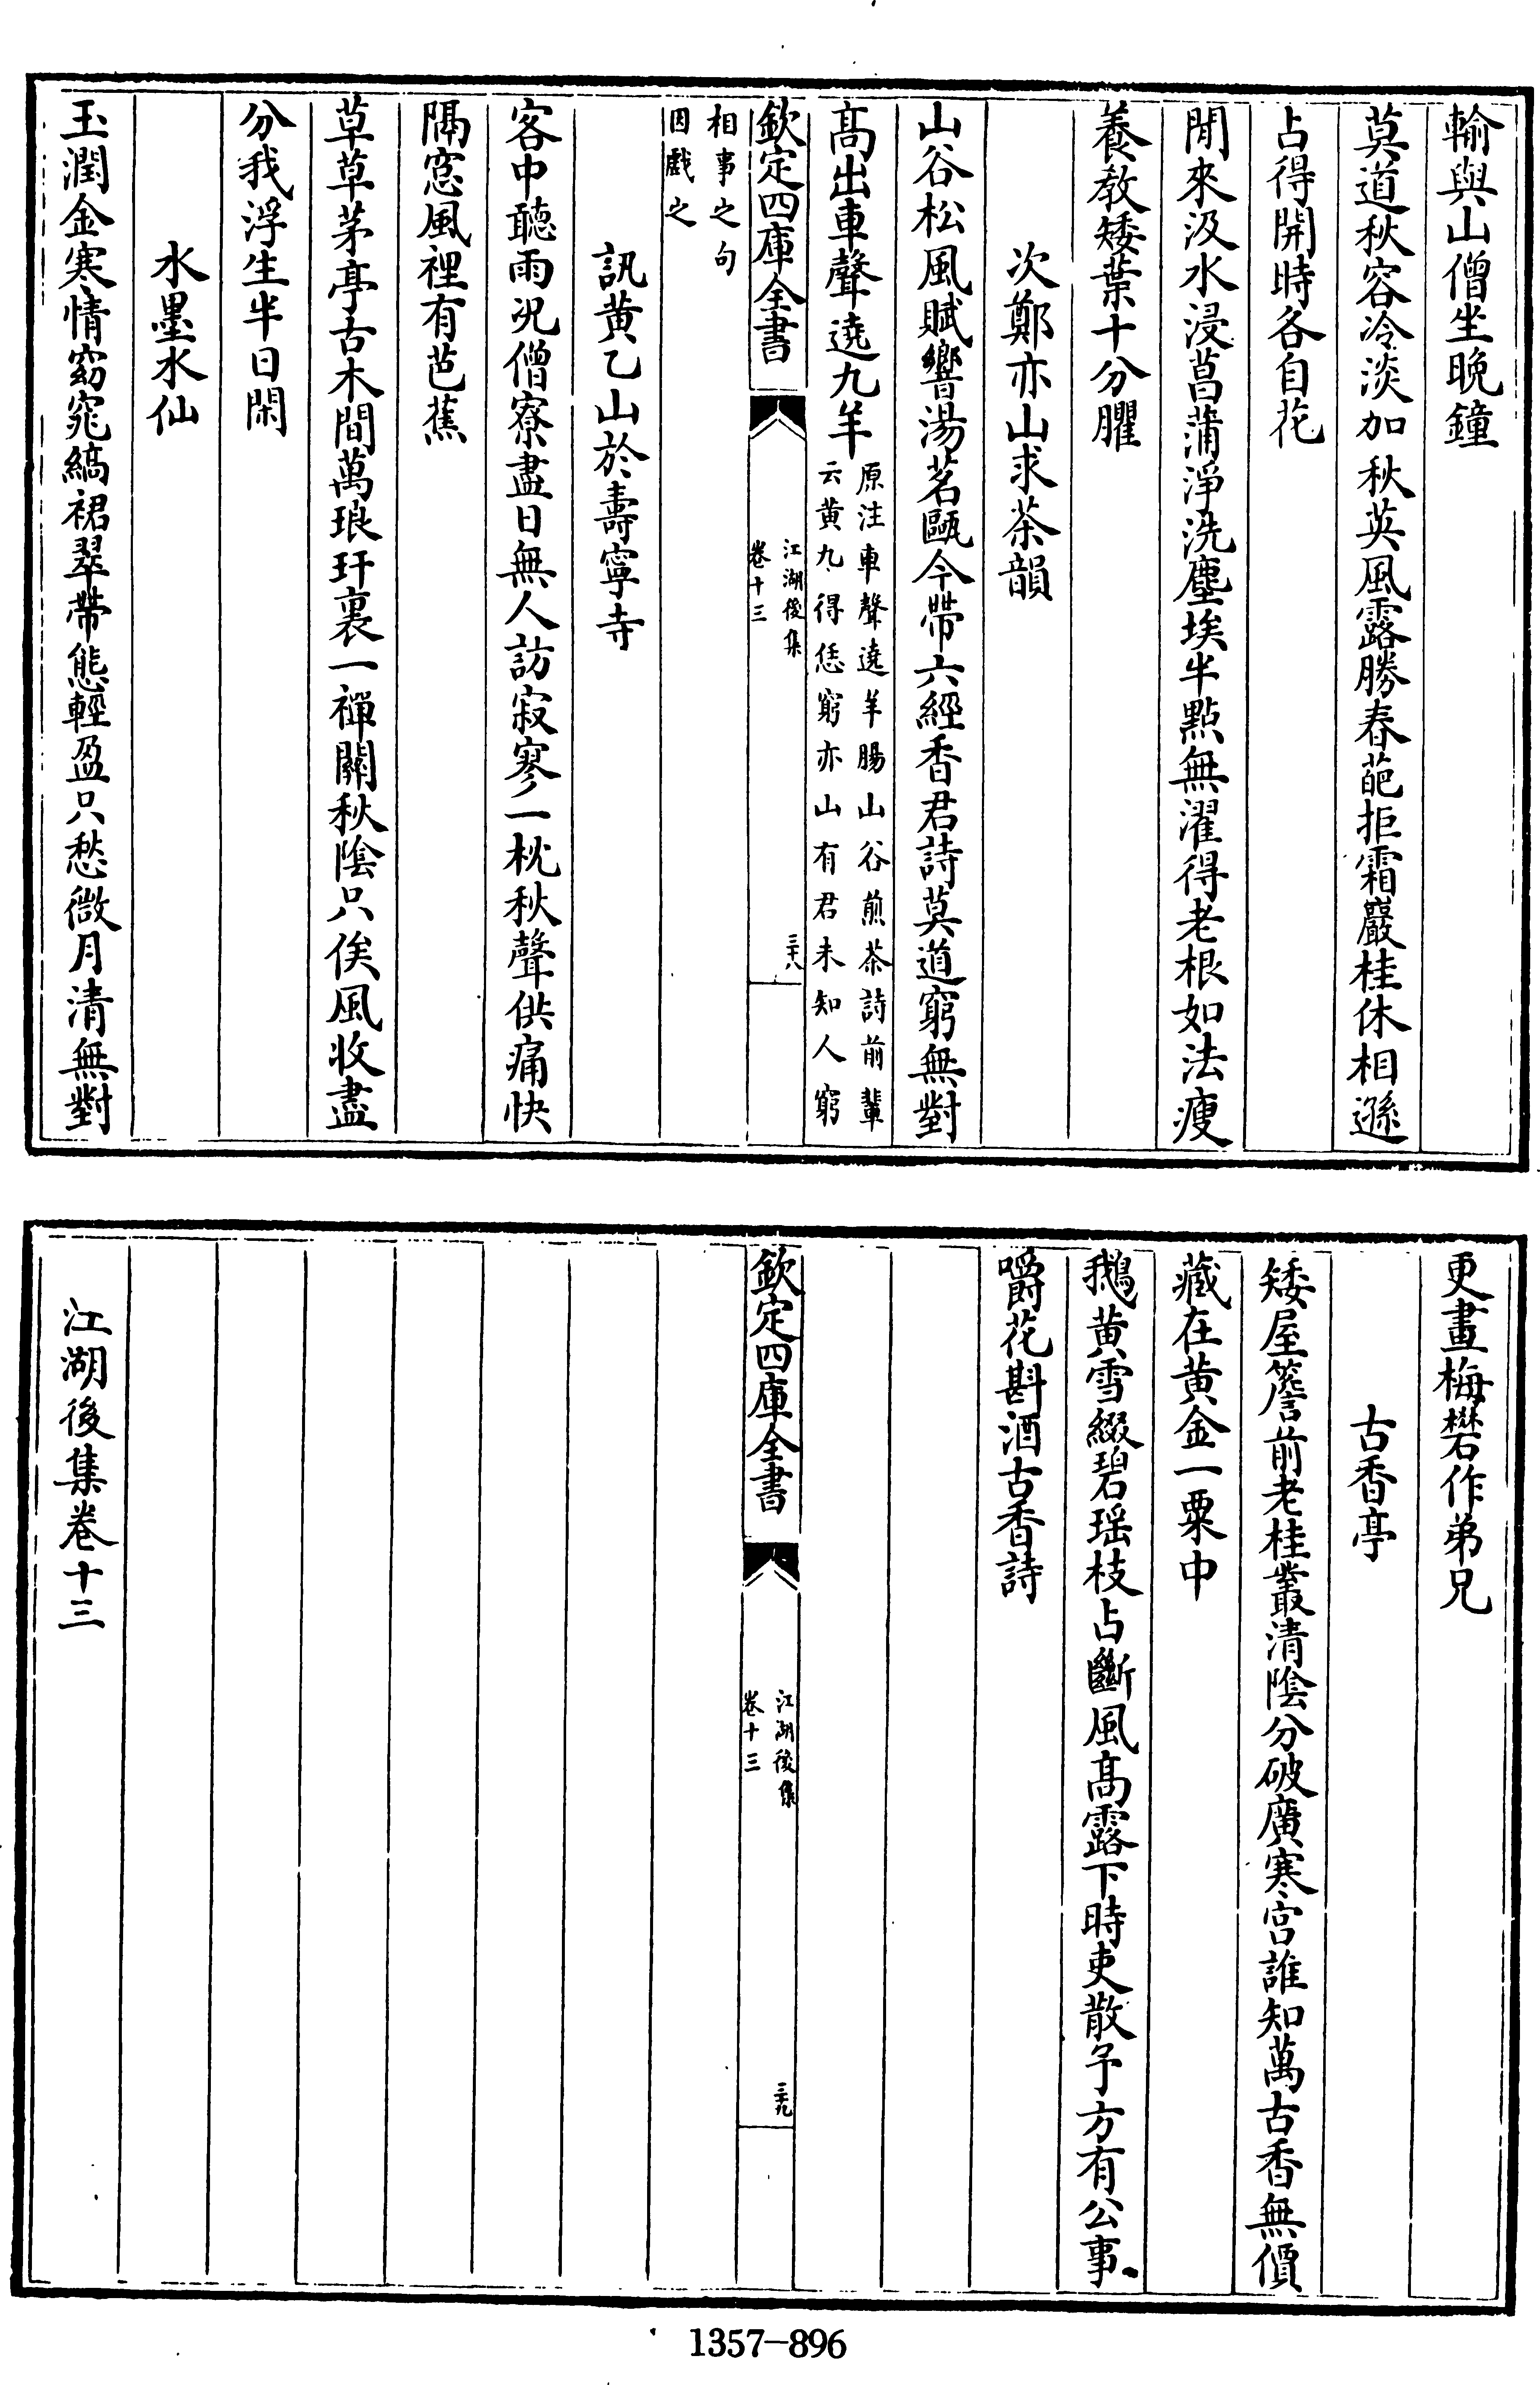 輸與山僧坐晚鐘
莫道秋容冷淡加秋英風露勝春葩拒霜巖桂休相遜
占得開時各自花
閒來汲水浸菖蒲淨洗塵埃半點無濯得老根如法瘦
養教矮葉十分臞
次鄭亦山求茶韻
山谷松風賦響湯茗甌今帶六經香君詩莫道窮無對
高出車聲遶九羊
原注車聲遶羊腸山谷煎茶詩前輩
云黄九得恁窮亦山有君未知人窮
欽定四庫全書
江湖後集
卷十三
三十八
相事之句
因戲之
訊黄乙山於壽寧寺
客中聽雨况僧寮盡日無人訪寂寥一枕秋聲供痛快
隔窓風裡有芭蕉
草草茅亭古木間萬琅玕裏一禪關秋陰只俟風收盡
分我浮生半日閑
水墨水仙
玉潤金寒情窈窕縞裙翠帶態輕盈只愁微月清無對
更畫梅礬作弟兄
古香亭
矮屋簷前老桂叢清陰分破廣寒宫誰知萬古香無價
藏在黄金一粟中
鵝黄雪綴碧瑶枝占斷風高露下時吏散予方有公事
嚼花斟酒古香詩
欽定四庫全書
江湖後集
卷十三
三十九
江湖後集卷十三
1357-896